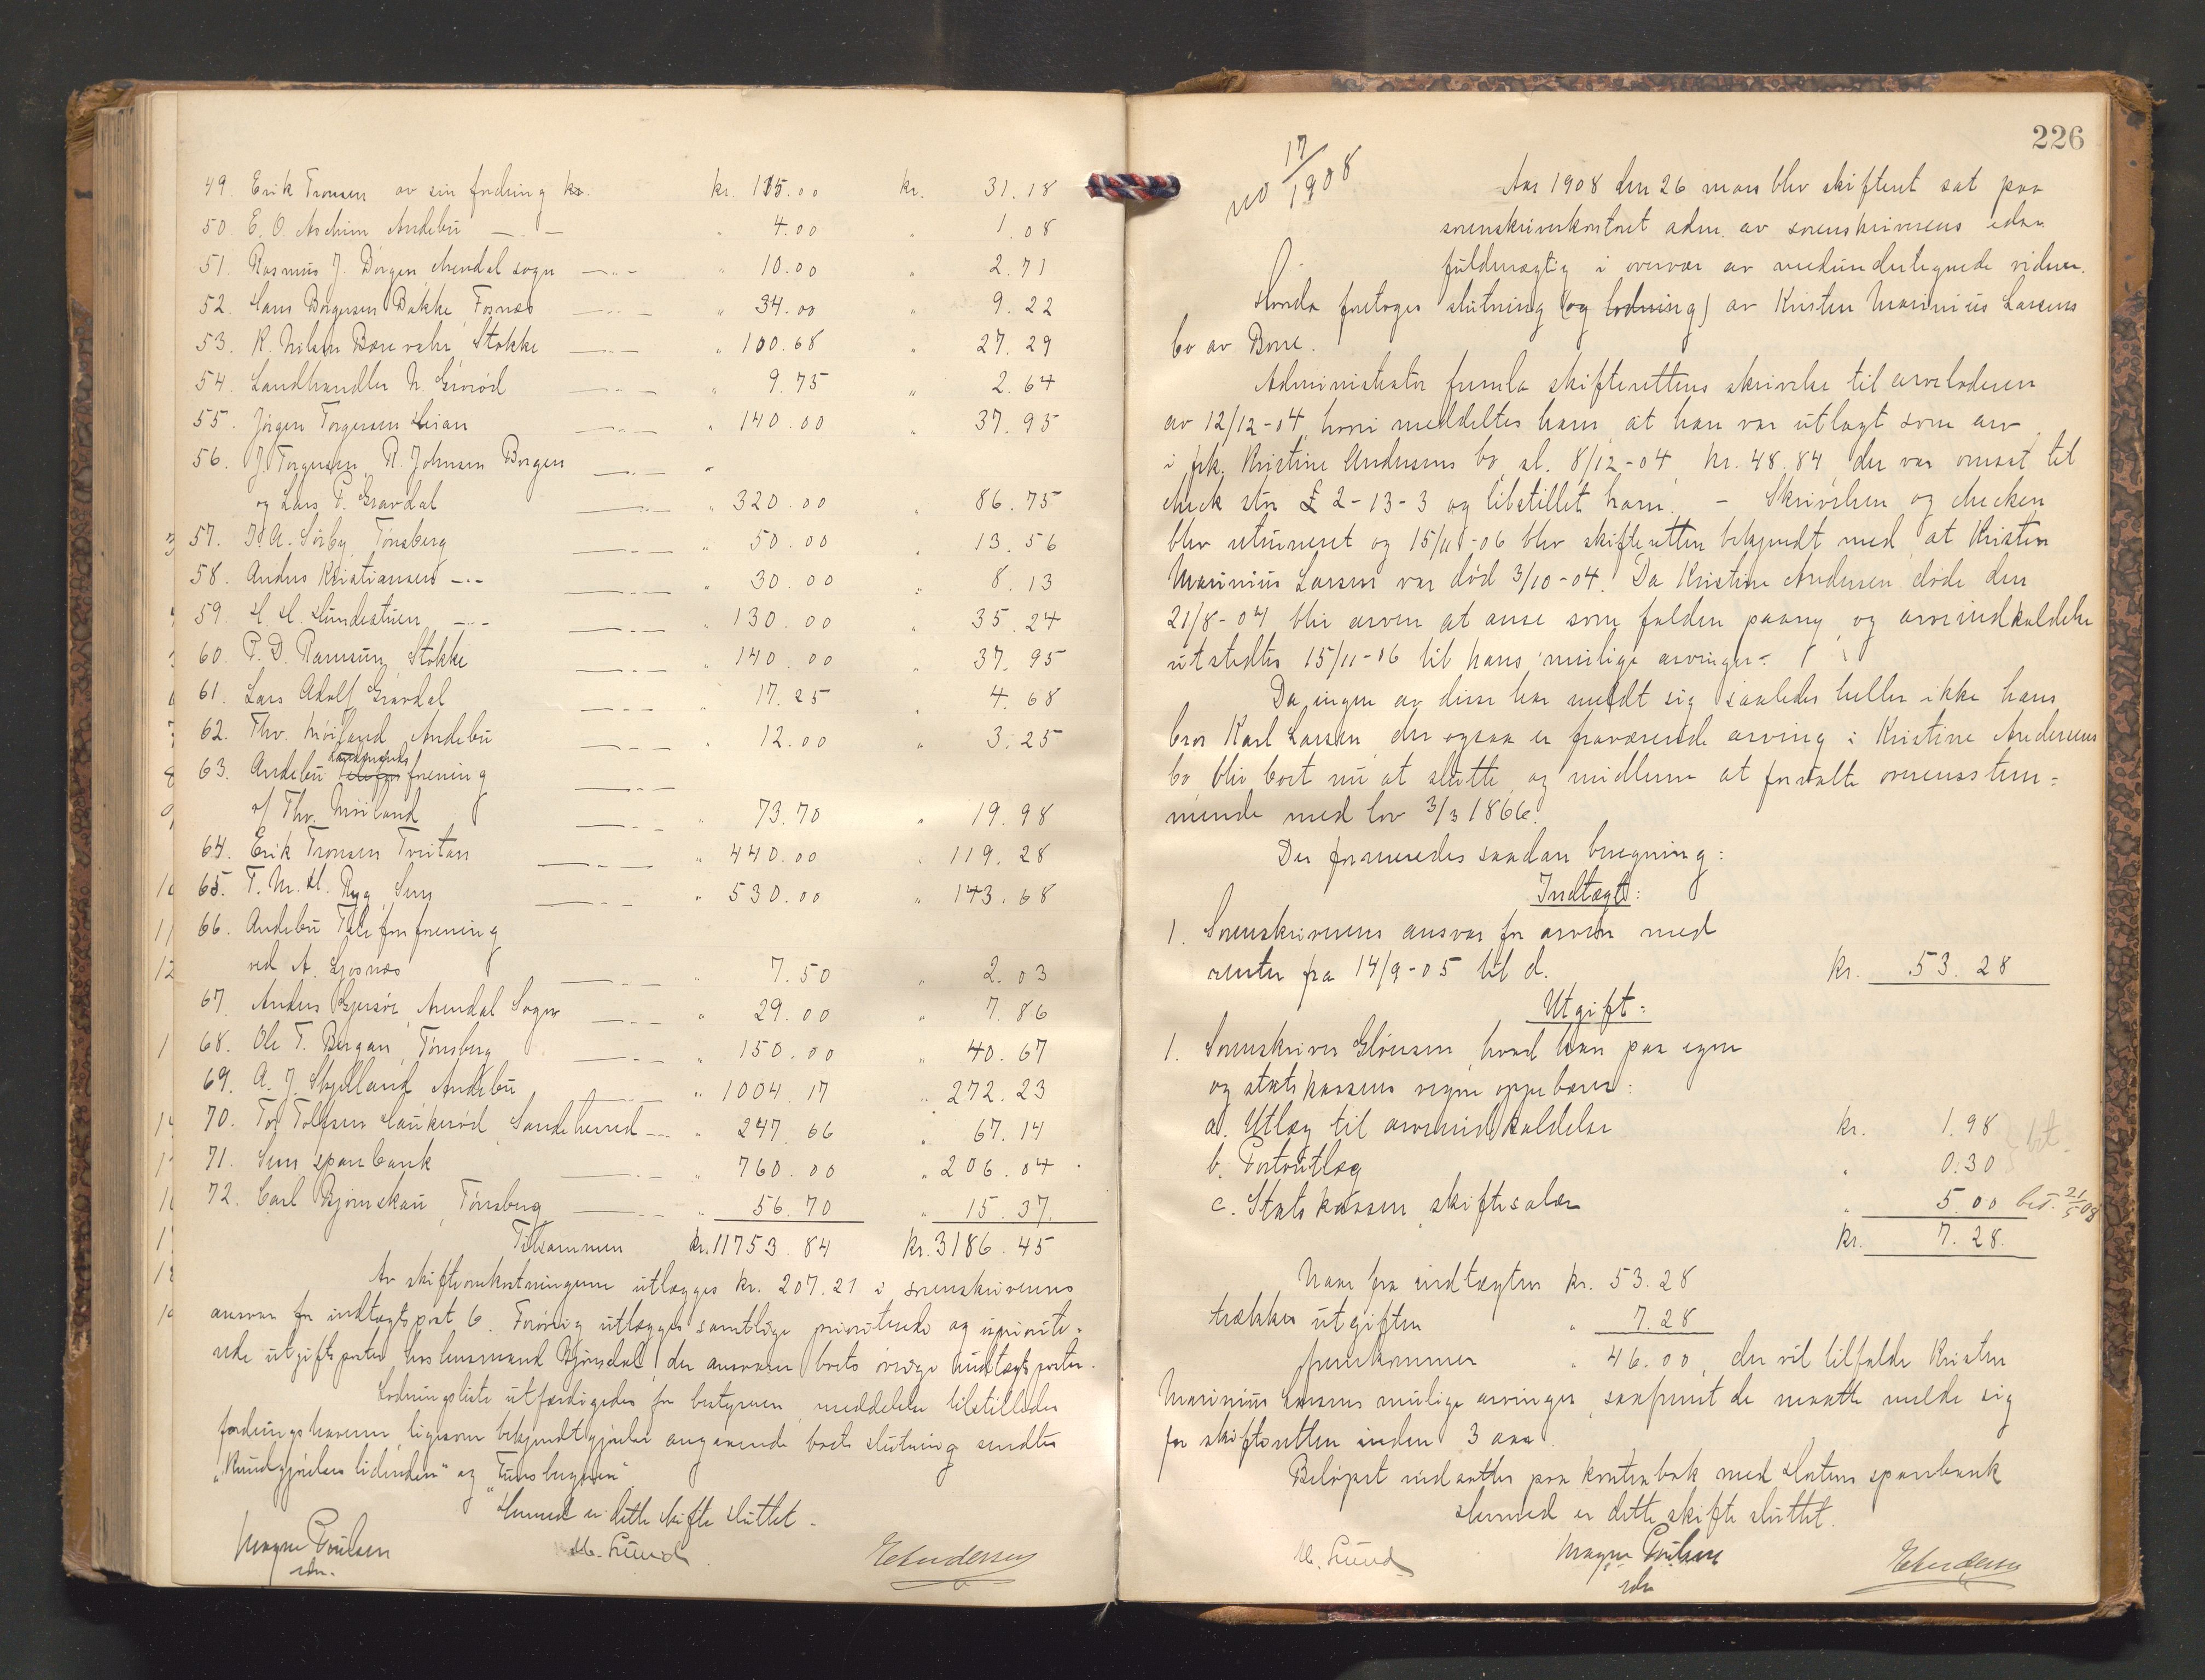 49. Erik Tronsen av sin fordring kr. kr. 115.00 kr. 31.18
50. E. O. Aschim Andebu — „ — „ 4.00 „ 1.08
51. Rasmus J. Borgen Arendal sogn — „ — „ 10.00 „ 2.71
52. Hans Borgersen Bakke, Fornæs — „ — „ 34.00 „ 9.22
53. K. Nilsen Stokke — „ — „ 100.68 „ 27.29
54. Landhandler N. — „ — „ 9.75 „ 2.64
55. Jörgen Torgersen — „ — „ 140.00 „ 37.95
56. J. Torgersen, R. Johnsen Borgen — „ — „
og Lars P. Gravdal — „ — „ 320.00 „ 86.75
57. Sörby, Tönsberg — „ — „ 50.00 „ 13.56
58. Anders Kristiansen — „ — — „ — „ 30.00 „ 8.13
59. H. H. — „ — — „ — „ 130.00 „ 35.24
60. P. D. Ramsum, Stokke — „ — „ 140.00 „ 37.95
61. Lars Adolf Gravdal — „ — „ 17.25 „ 4.68
62. Thv. Möiland, Andebu — „ — „ 12.00 „ 3.25
63. Andebu forening — „ —
v/ Thv. Möiland — „ — „ 73.70 „ 19.98
64. Erik Tronsen Tveitan — „ — „ 440.00 „ 119.28
65. T. M. H. Ryg, Sem — „ — „ 530.00 „ 143.68
66. Andebu Telefonforening
ved A. Gjösnæs — „ — „ 7.50 „ 2.03
67. Anders Arendal Sogn — „ — „ 29.00 „ 7.86
68. Ole T. Bergan, Tönsberg — „ — „ 150.00 „ 40.67
69. A. J. Skjelland, Andebu „ 1004.17 „ 272.23
70. Tor Tolfsen Haukeröd, Sandeherred — „ 247.66 „ 67.14
71. Sem sparebank — „ — „ 760.00 „ 206.04
72. Carl Björnskau, Tönsberg — „ — „ 56.70 „ 15.37
Tilsammen kr. 11753.84 kr. 3186.45
Av skifteomkostningerne utlægges kr. 207.21 i sorenskriverens
ansvar for indtægtspost 6. Forövrig utlægges samtlige prioriterede og uprioite-
rede utgiftsposter hos lensmand der ansvarer boets övrige indtægtsposter.
Lodningsliste utfærdigedes for bestyreren, meddelelse tilstilledes
fordringshaverne, ligesom bekjendtgjörelse angaaende boets slutning sendtes
„Kundgjörelsestidenden“ og „Tunsbergeren“.
Hermed er dette skifte sluttet.
Magne Poulsen M. Lund E Andersen
edsv.
226
no 17/1908
Aar 1908 den 26 mars blev skifteret sat paa
sorenskriverkontoret adm. av sorenskriverens edsv.
fuldmægtig i overvær av medundertegnede vidner.
Hvorda foretoges slutning (og lodning) av Kristen Marinius Larsens
bo av Borre.
Administrator fremla skifterettens skrivelse til arveladeren
av 12/12-04, hvori meddeltes ham, at han var utlagt som arv
i frk. Kristine Andersens bo, sl. 8/12-04 kr. 48.84, der var omsat til
check stor £ 2-13-3 og tilstillet ham. – Skrivelsen og checken
blev returneret og 15/11-06 blev skifteretten bekjendt med, at Kristen
Marinius Larsen var död 3/10-04. Da Kristine Andersen döde den
21/8-04 blir arven at anse som falden paany, og arveindkaldelse
utstedtes 15/11-06 til hans mulige arvinger.
Da ingen av disse har meldt sig, saaledes heller ikke hans
bror Karl Larsen, der ogsaa er fraværende arving i Kristine Andersens
bo, blir boet nu at slutte og midlerne at forvalte overensstem-
mende med lov 3/3 1866.
Der formeredes saadan beregning:
Indtægt:
1. Sorenskriverens ansvar for arven med
renter fra 14/9-05 til d. kr. 53.28
Utgift:
1. Sorenskriver hvad han paa egne
og statskassens vegne oppebærer:
a. Utlæg til arveindkaldelse kr. 1.98
b. Portoutlæg „ 0.30 bet.
c. Statskassen, skiftesalær „ 5.00 bet. 21/5 08
kr. 7.28
Naar fra indtægten kr. 53.28
trækkes utgiften „ 7.28
fremkommer „ 46.00, der vil tilfalde Kristen
Marinius Larsens mulige arvinger, saafremt de maatte melde sig
for skifteretten inden 3 aar.
Belöpet indsættes paa kontrabok med Hortens sparebank
Hermed er dette skifte sluttet.
M. Lund Magne Poulsen E Andersen
edsv